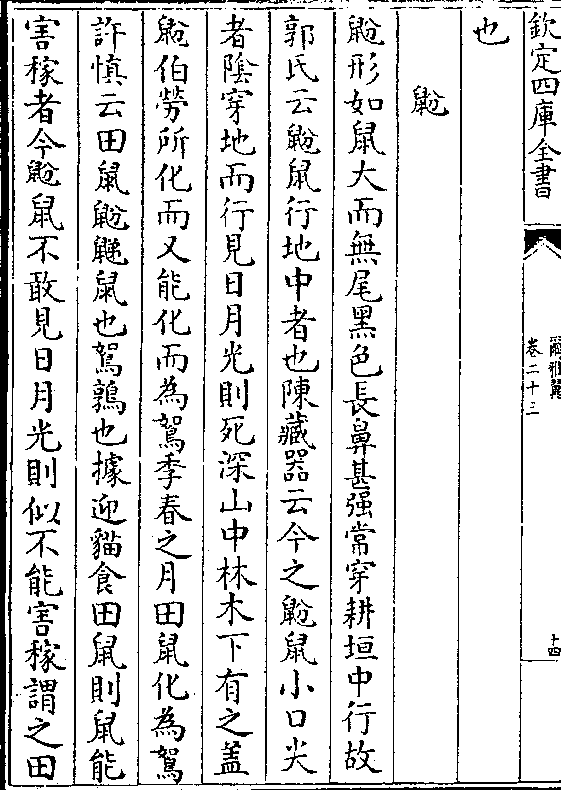 欽定四庫全書
爾雅翼
卷二十三
十四
也
鼢
鼢形如鼠大而無尾黑色長鼻甚强常穿耕垣中行故
郭氏云鼢鼠行地中者也陳藏器云今之鼢鼠小口尖
者陰穿地而行見日月光則死深山中林木下有之盖
鼢伯勞所化而又能化而為鴽季春之月田鼠化為鴽
許慎云田鼠鼢鼷鼠也鴽鶉也據迎貓食田鼠則鼠能
害稼者今鼢鼠不敢見日月光則似不能害稼謂之田